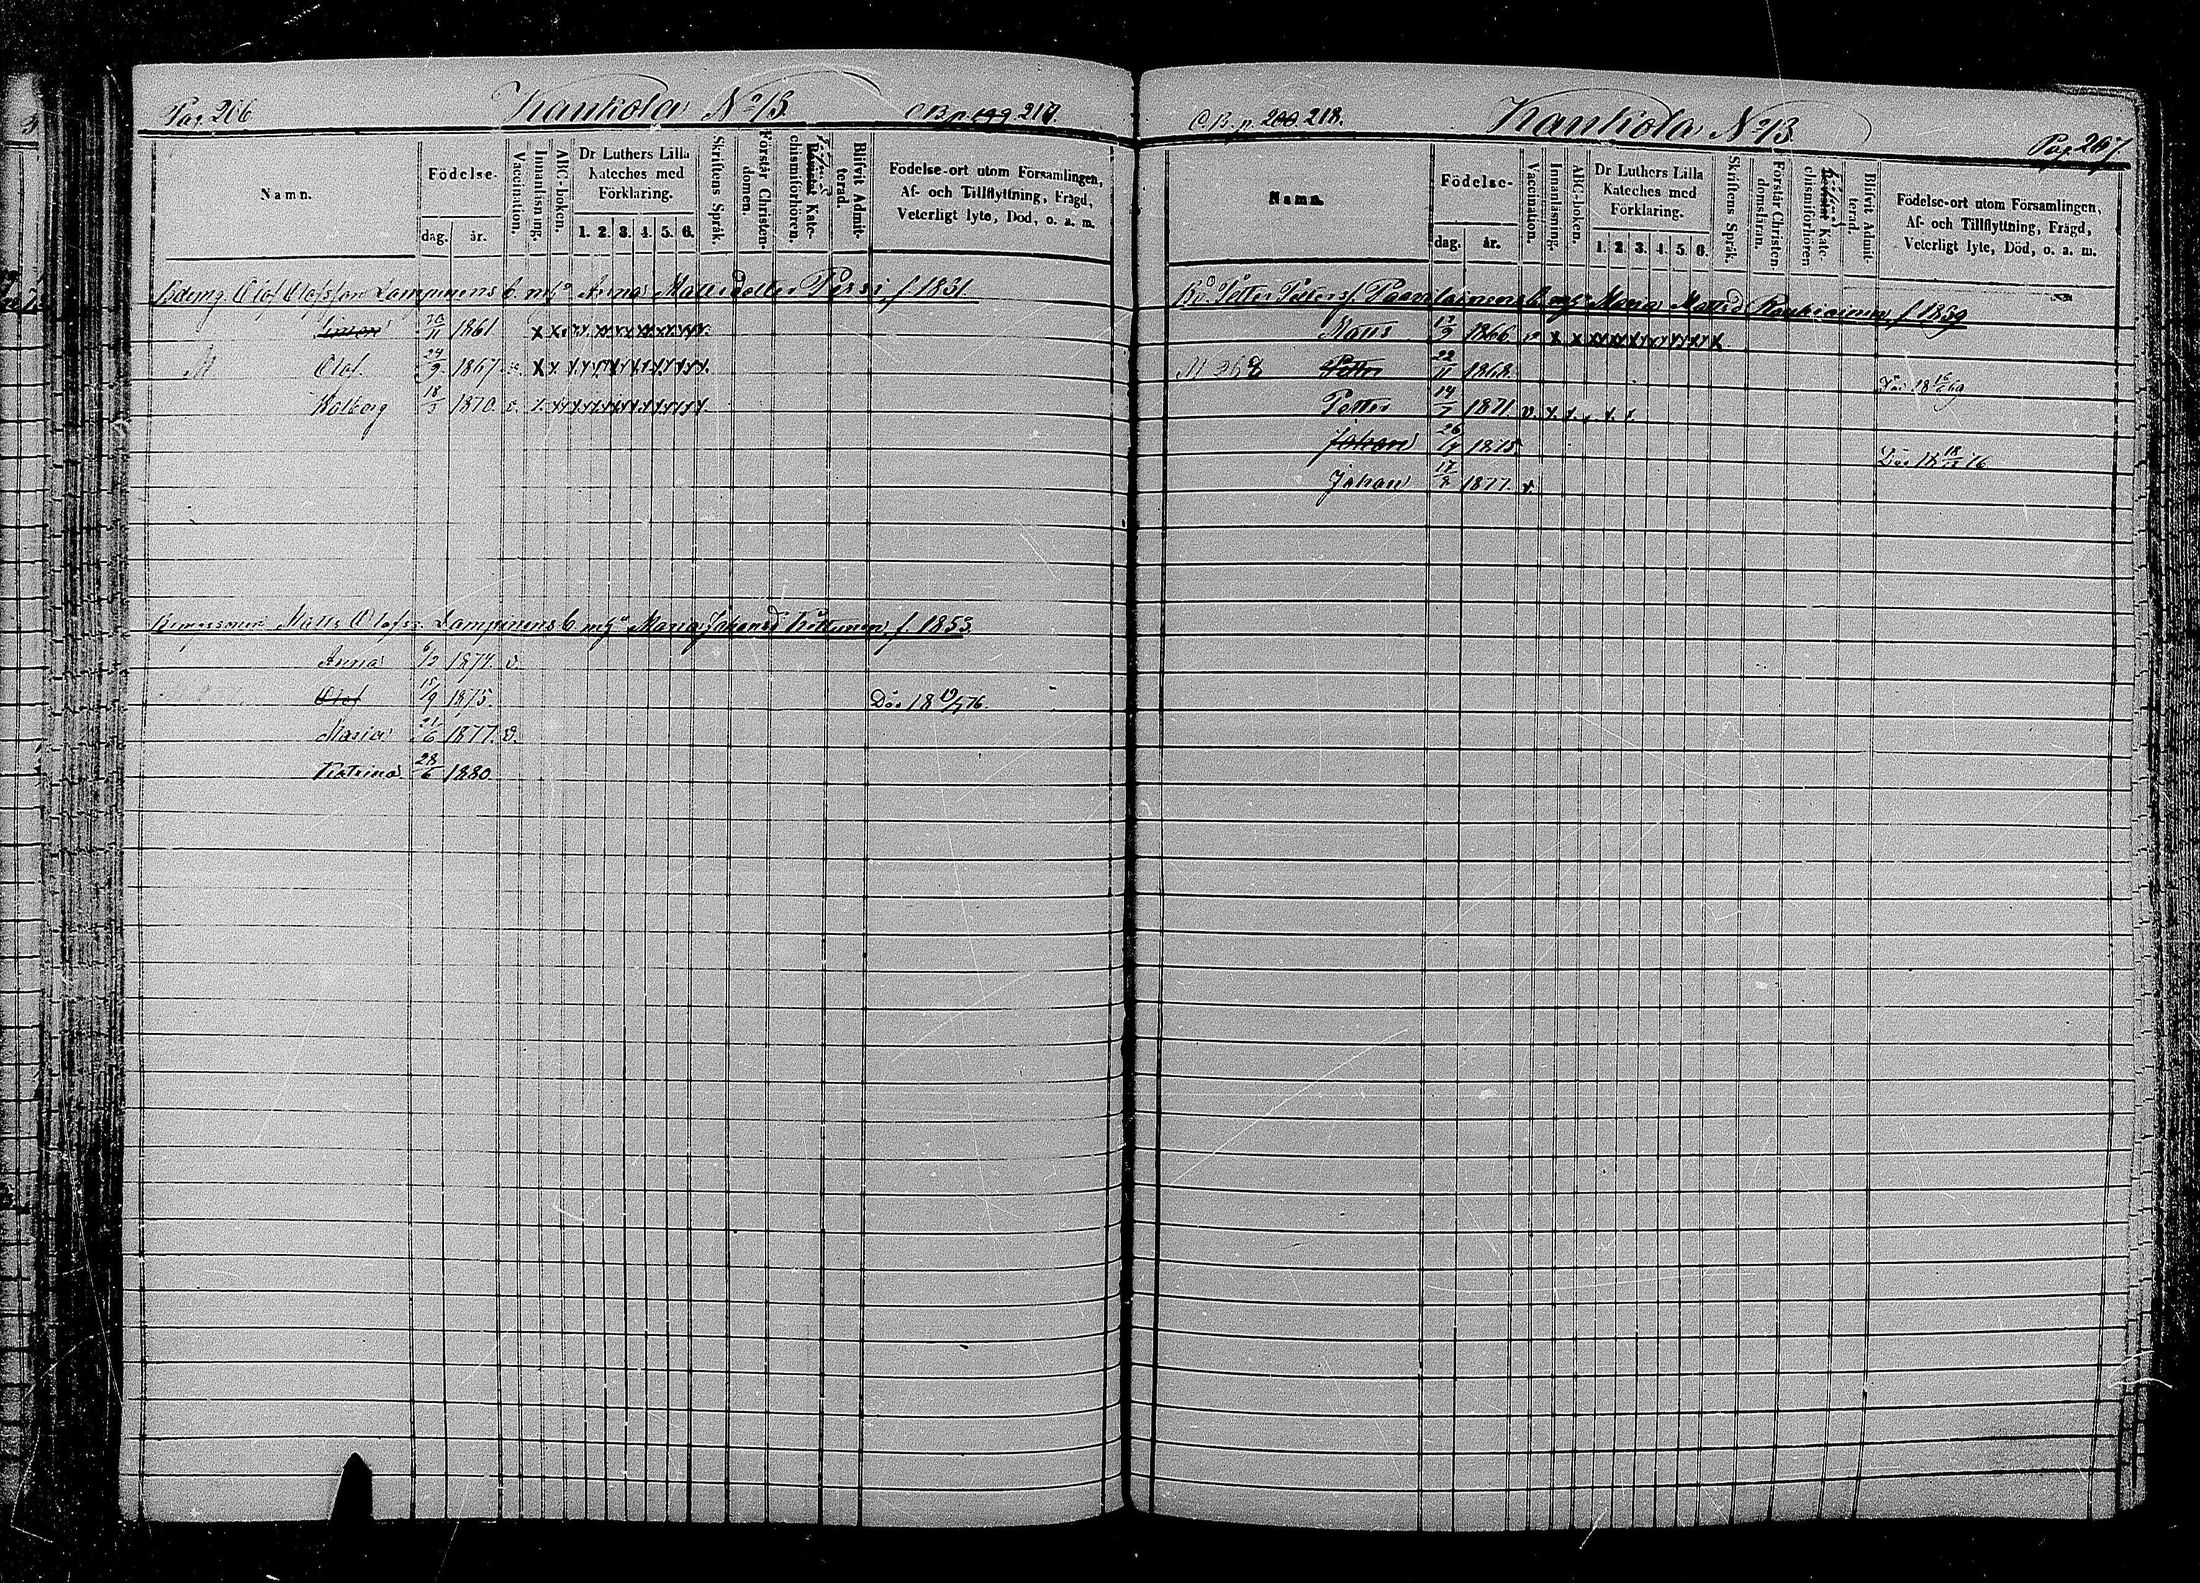 Pag. 206
Kankola No 13.
C.B.p. 199 217.
Namn.
Födelse-
dag.
år.
Vaccination.
Innanläsning.
ABC-boken.
Dr Luthers Lilla
Kateches med
Förklaring.
1. 2. 3. 4. 5. 6.
Skriftens Språk.
Förstår Christen-
domen.
Kate-
chismiförhören.
Blifvit Admit-
terad.
Födelse-ort utom Församlingen,
Af- och Tillflyttning, Frägd,
Veterligt lyte, Död, o. a. m.
Olof Olofsson Lampinens b. m. h. Anna Mattsdotter Pessi f. 1831
Simon 30/11 1861
M Olof 24/9 1867. v.
Walborg 18/3 1870. v.
Matts Olofss. Lampinens b. m. h. Maria Johansd Kettunen, f. 1853
Anna 6/2 1874. v.
Olof 15/9 1875. Död 18 19/7 76.
Maria 21/6 1877. v.
Katrina 28/6 1880
C.B.p. 200. 218.
Kankola No 13
Pag 207
Namn.
Födelse-
dag.
år.
Vaccination.
Innanläsning.
ABC-boken.
Dr Luthers Lilla
Kateches med
Förklaring.
1. 2. 3. 4. 5. 6.
Skriftens Språk.
Förstår Christen-
domsläran.
Kate-
chismiförhören
Blifvit Admit-
terad.
Födelse-ort utom Församlingen,
Af- och Tillflyttning, Frägd,
Veterligt lyte, Död, o. a. m.
Petter Petterss. Paavilainens b. m. h. Maria Mattsd f. 1839
Matts 12/9 1866. v.
Petter 22/11 1868.
Petter 14/7 1871. v.
Johan 26/4 1875. Död 18 18/12 76
Johan 17/8 1877. v.